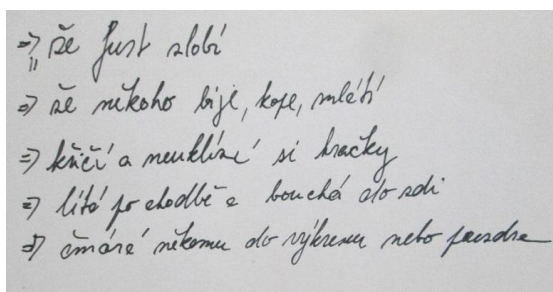 => že furt zlobí
=> že někoho bije, kope, mlátí
=> křičí a neuklízí si hračky
=> lítá po chodbě a bouchá do zdi
=> čmárá někomu do výkresu nebo pouzdra